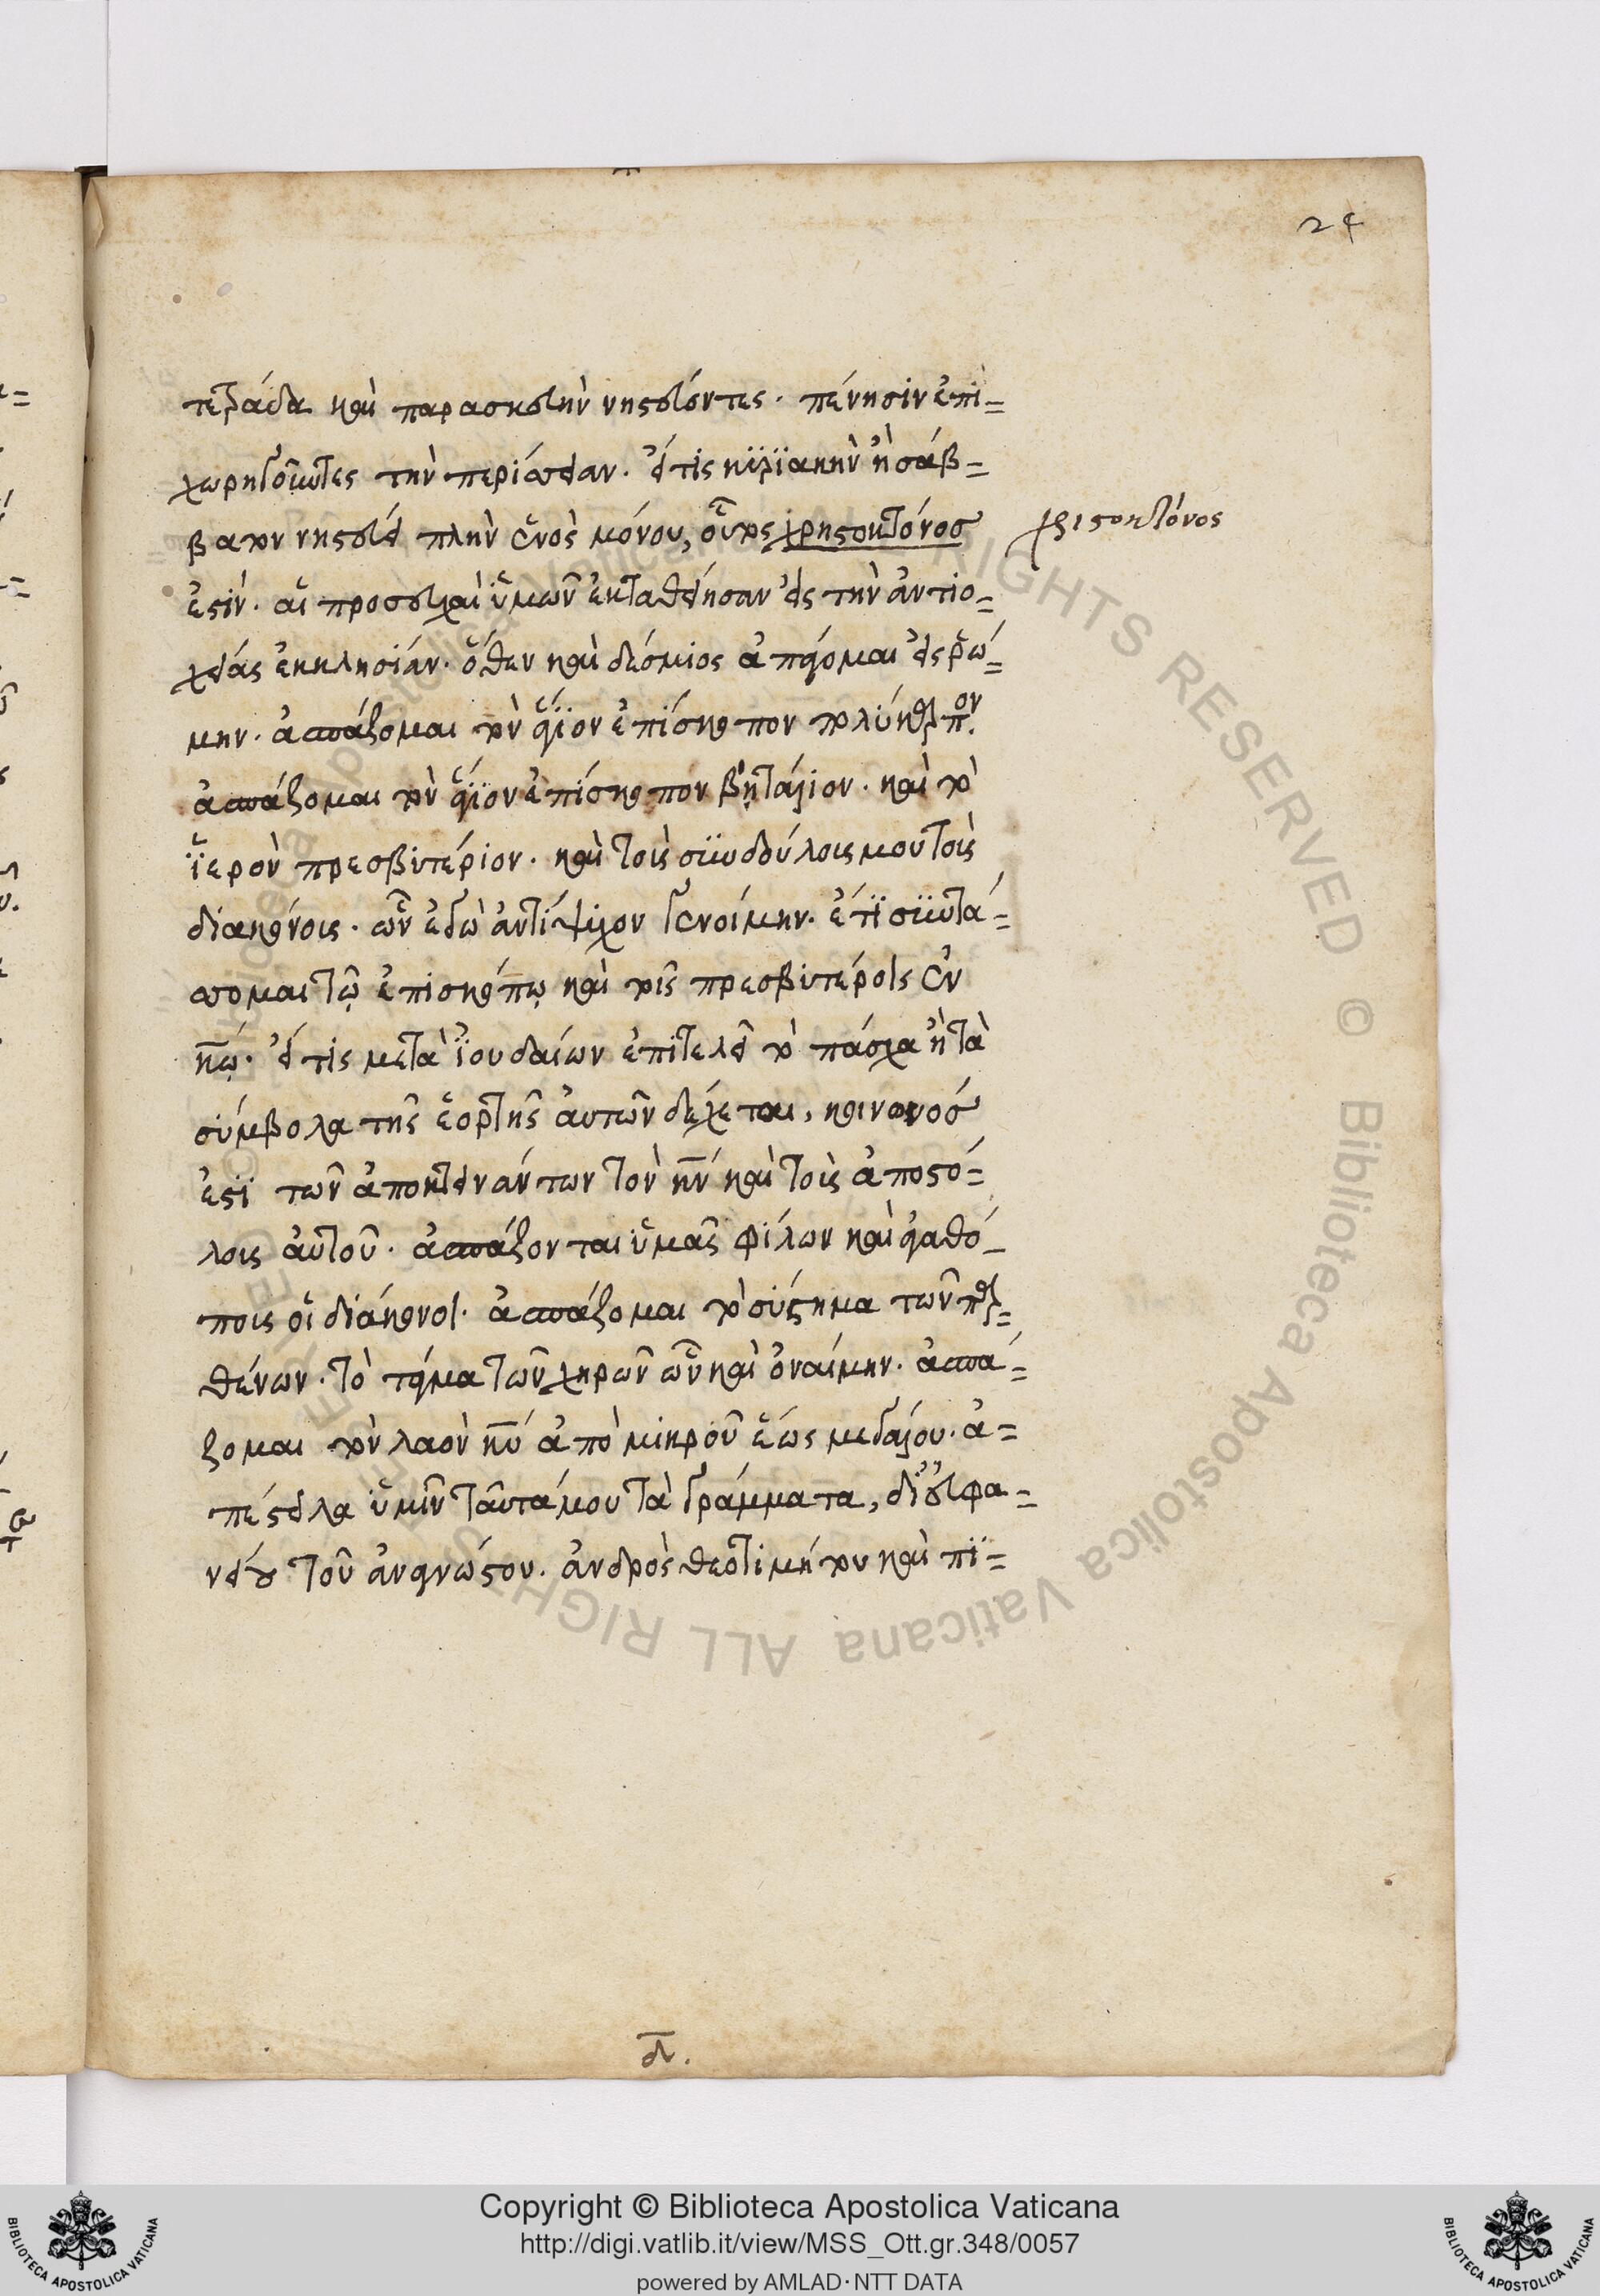 24
τετράδα καὶ παρασκευὴν νηστεύοντες. πένησιν ἐπὶ=
χωρηγοῦντες τὴν περίσσειαν. εἴ τις κϋρϊακὴν ἢ σάβ=
βατον νηστεύει πλὴν ἑνὸς μόνου, οὗτος χρηστοκτόνος
χριστοκτόνος
ἐστίν. αἱ προσευχαὶ ὑμῶν ἐκταθείησαν εἰς τὴν ἀντιο=
χείας ἐκκλησίαν. ὅθεν καὶ δέσμιος ἀπάγομαι εἰς ῥώ=
μην. ἀσπάζομαι τὸν ἅγϊον ἐπίσκοπον πολύκαρπον.
ἀσπάζομαι τὸν ἅγϊον ἐπίσκοπον βητάλιον. καὶ τὸ
ἱερὸν πρεσβιτέριον. καὶ τοὶς σϋνδούλοις μου τοὶς
διακόνοις. ὧν ἐγὼ ἀντίψυχον γενοίμην. ἔτϊ σϋντά=
σσομαι τῷ ἐπισκόπῳ καὶ τοῖς πρεσβιτέροις ἐν
κῶ. εἴ τις μετὰ ἰουδαίων ἐπιτελεῖ τὸ πάσχα ἢ τὰ
σύμβολα τῆς ἑορτῆς ἀυτῶν δέχεται, κοινωνὸς
ἐστϊ τῶν ἀποκτεινάντων τὸν κν καὶ τοὶς ἀποστό=
λοις ἀυτοῦ. ἀσπάζονται ὑμᾶς φίλων καὶ ἀγαθό=
ποις οἱ διάκονοι. ἀσπάζομαι τὸ σύστημα τῶν παρ=
θένων. τὸ τάγμα τῶν χηρῶν ὧν καὶ ὀναίμην. ἀσπά=
ζομαι τὸν λαὸν κυ ἀπὸ μικροῦ ἕως μεγάλου. ἀ=
πέστειλα ὑμῖν ταῦτά μου τὰ γράμματα, δι' ἐυφα=
νείου τοῦ ἀναγνώστου. ἀνδρὸς θεοτιμήτου καὶ πϊ=
δ.
Copyright © Biblioteca Apostolica Vaticana
http://digi.vatlib.it/view/MSS_Ott.gr.348/0057
powered by AMLAD·NTT DATA